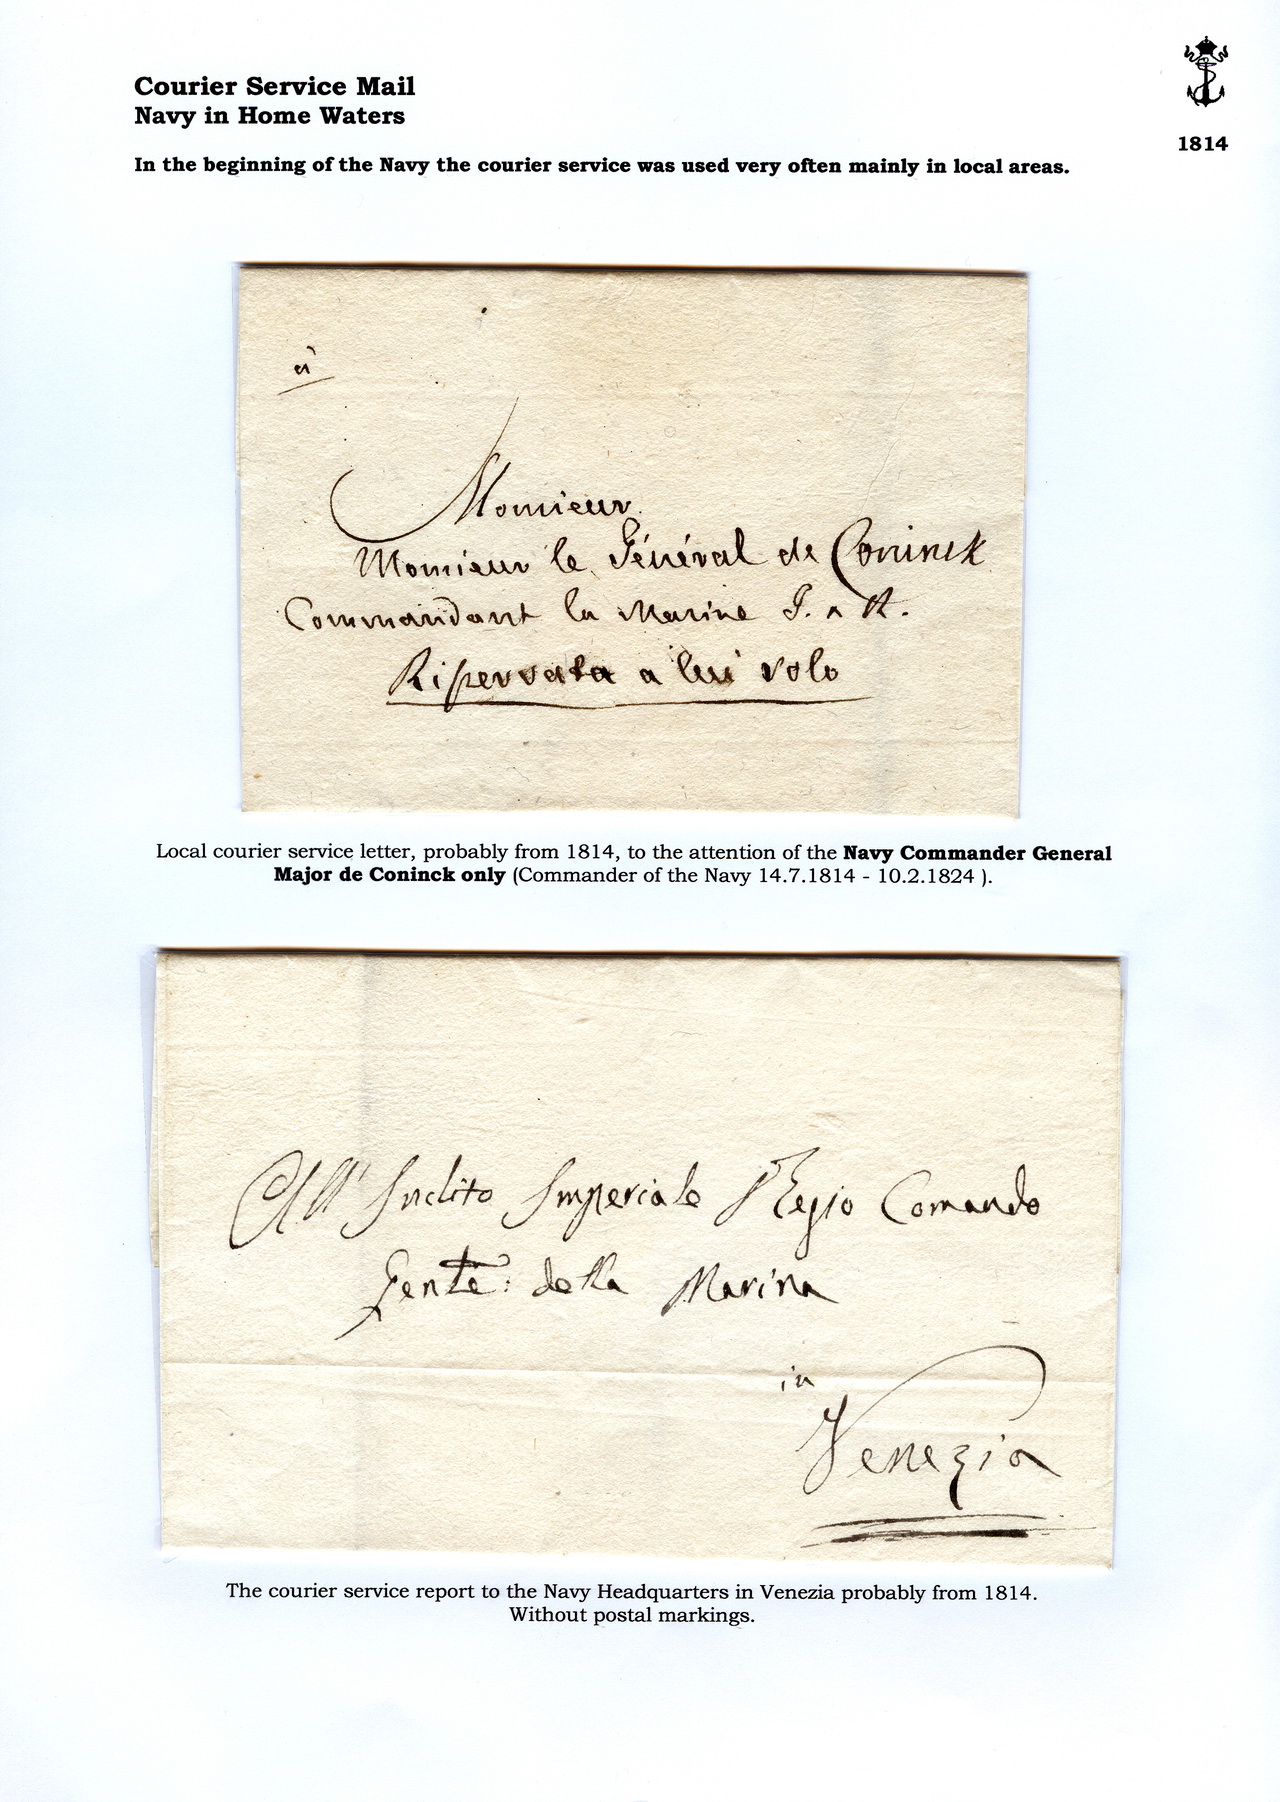 Courier Service Mail
Navy in Home Waters
1814
In the beginning of the Navy the courier service was used very often mainly in local areas.
à
Monsieur
Monsieur le Général de Coninck
Commandant la Marine I. & R.
Riservata a lui solo
Local courier service letter, probably from 1814, to the attention of the Navy Commander General
Major de Coninck only (Commander of the Navy 14.7.1814 - 10.2.1824 ).
All' Inclito Imperiale Regio Comando
Gente: della Marina
in
Venezia
The courier service report to the Navy Headquarters in Venezia probably from 1814.
Without postal markings.